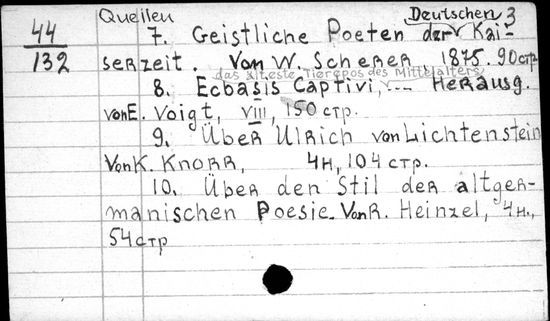 44
132
Quellen
3
7. Geistliche Poeten der Deutschen Kai-
serzeit. Von W. Scherer, 1875. 90 стр.
das älteste Tierepos des Mittelalters
8. Ecbasis Captivi, --- Herausg.
von E. Voigt, VIII, 150 стр.
9. Über Ulrich von Lichtenstein
Von K. Knorr, 4н, 104 стр.
10. Über den Stil der altger-
manischen Poesie. Von R. Heinzel, 4н.,
54 стр